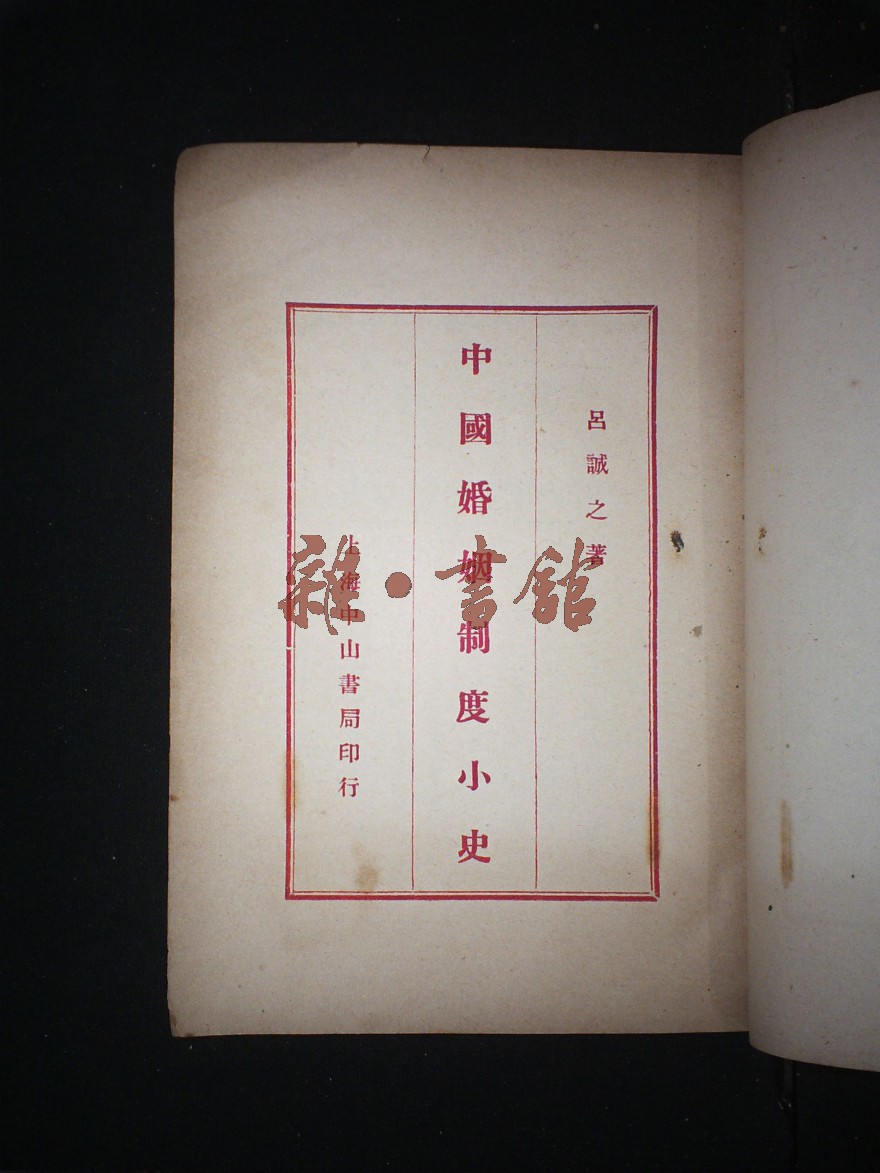 呂誠之著
中國婚姻制度小史
上海中山書局印行
雜·書館